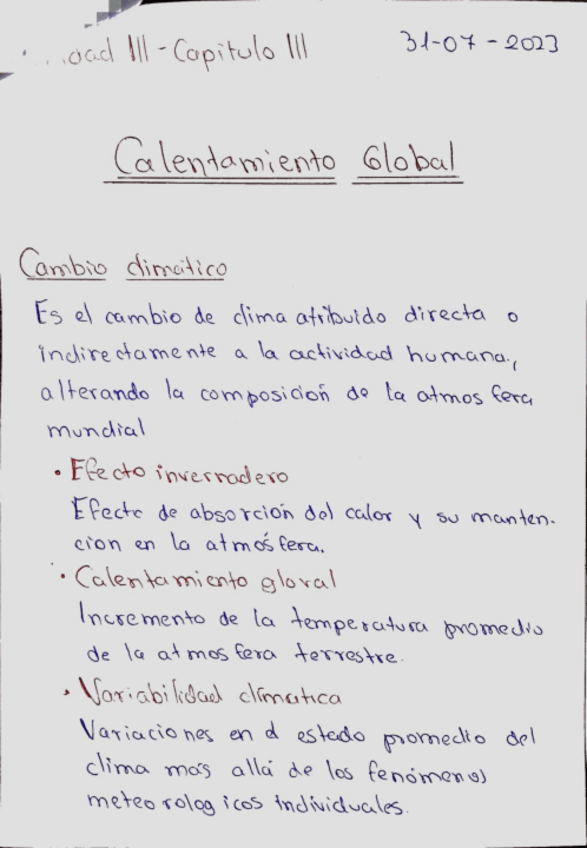 III - Capitulo III
31-07-2023
Calentamiento Global
Cambio climático
Es el cambio de clima atribuido directa o
indirectamente a la actividad humana,
alterando la composición de la atmosfera
mundial
• Efecto invernadero
Efecto de absorción del calor y su manten-
cion en la atmósfera.
• Calentamiento gloval
Incremento de la temperatura promedio
de la atmosfera terrestre.
• Variabilidad climatica
Variaciones en el estado promedio del
clima más allá de los fenómenos
meteorologicos individuales.